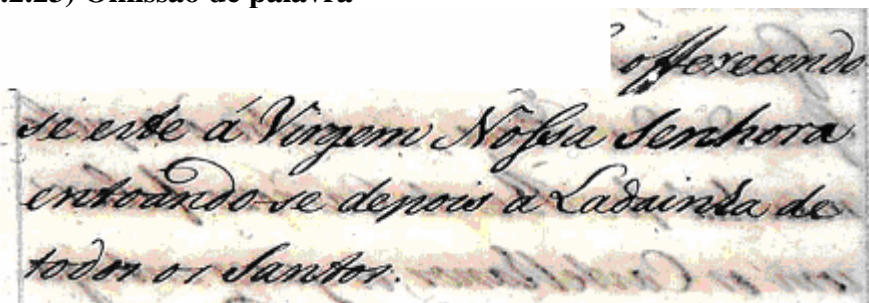 .2.25) Omissão de palavra
offerecendo
se este á Virgem Nossa Senhora
entoando-se depois a Ladainha de
todos os Santos.